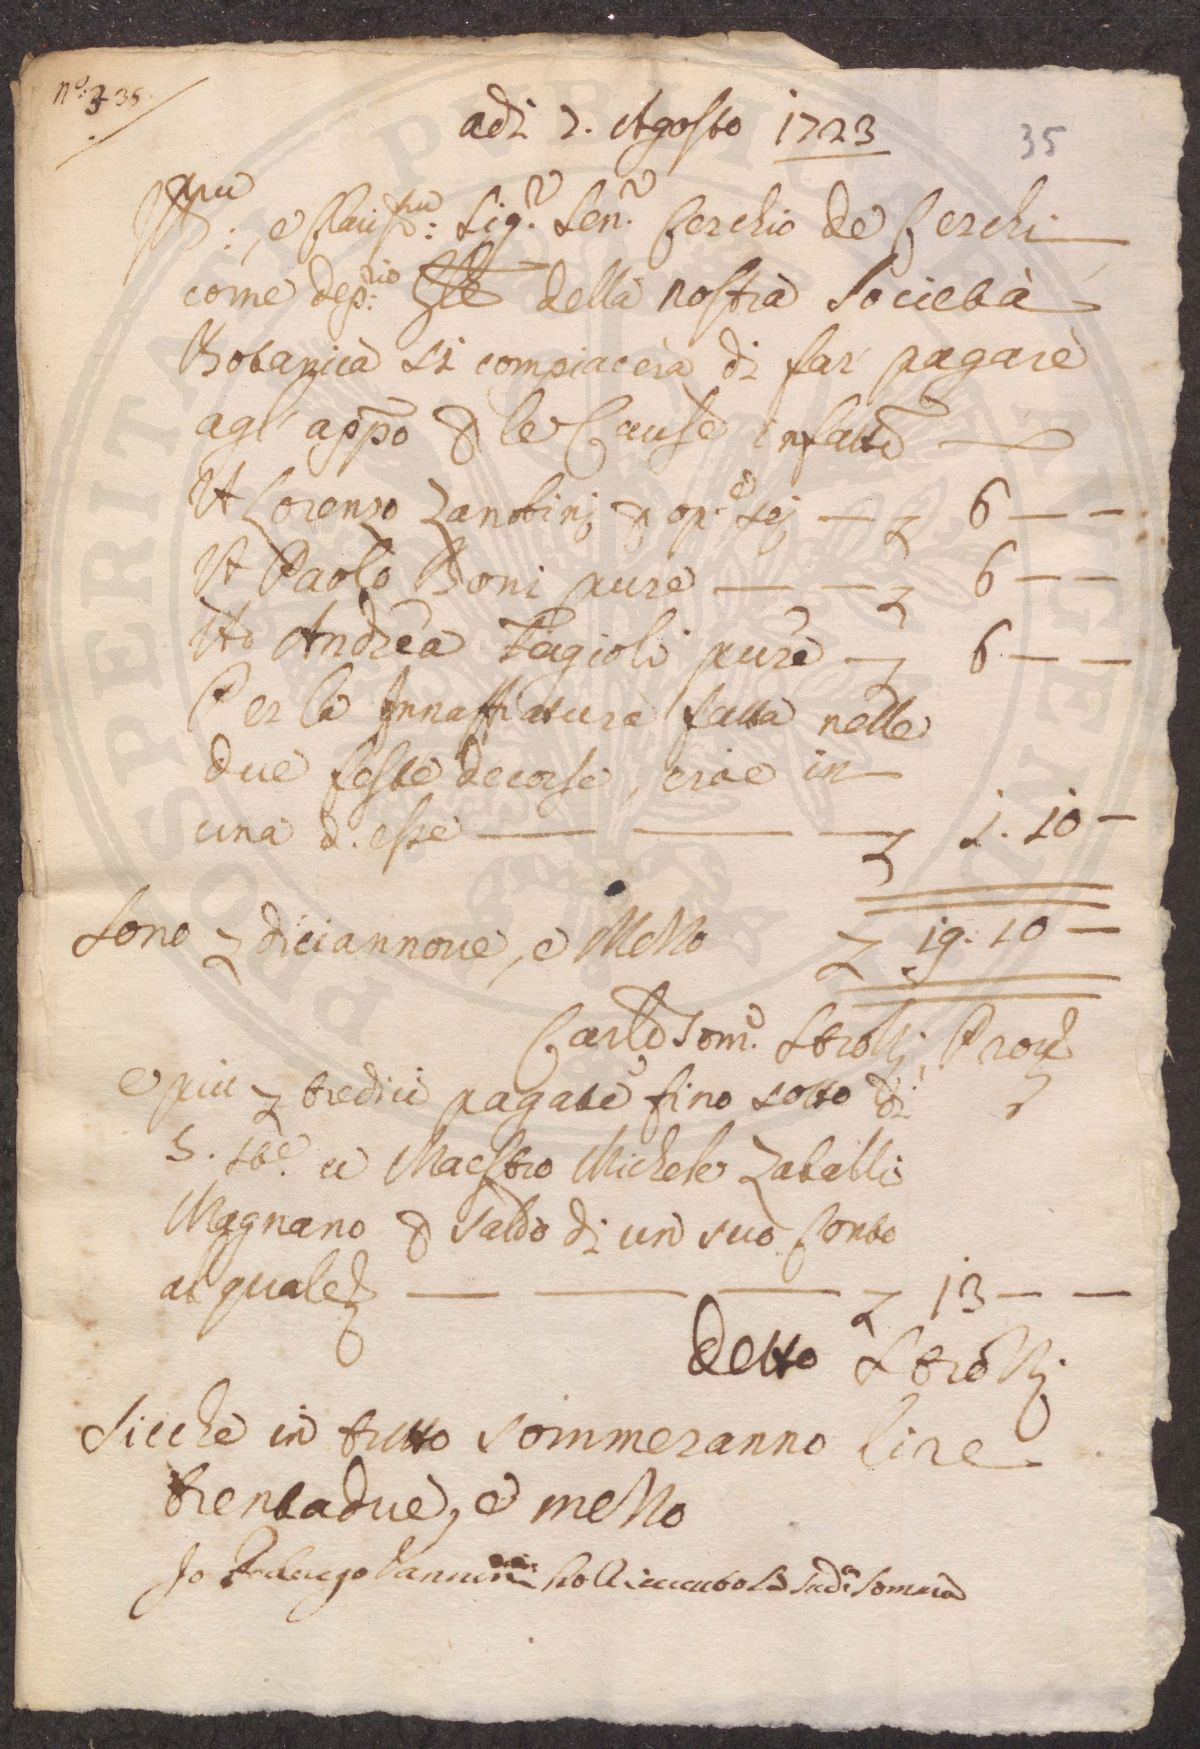 n.° 3 35
35
adi 2. Agosto 1723
e Clariss.mo: Sig.r Sen.r Cerchio de Cerchi
come dep.rio della nostra Società
Botanica si compiacerà di far pagare
agl' appo p le Cause infatte
A Lorenzo Zanobinj p op.e sej — £ 6 — —
A Paolo Boni pure — — £ 6 — —
Ad Andrea Fagioli pure — £ 6 — —
Per la Innaffiatura fatta nelle
due feste decorse, cioè in
una d. esse — — — £ 1. 10 —
Sono £ diciannove, e Mezzo £ 19. 10 —
Carlo Tom.o Strozzj
e piu £ tredici pagate fino sotto di
5. a Maestro Michele Zaballi
Magnano p saldo di un suo Conto
al quale — — — £ 13 — —
detto Strozzj
Sicche in tutto sommeranno lire
trentadue, e mezzo
Jo ho Riceuuto la sud.a somma
PROSPERITATI PUBLICAE AUGENDAE